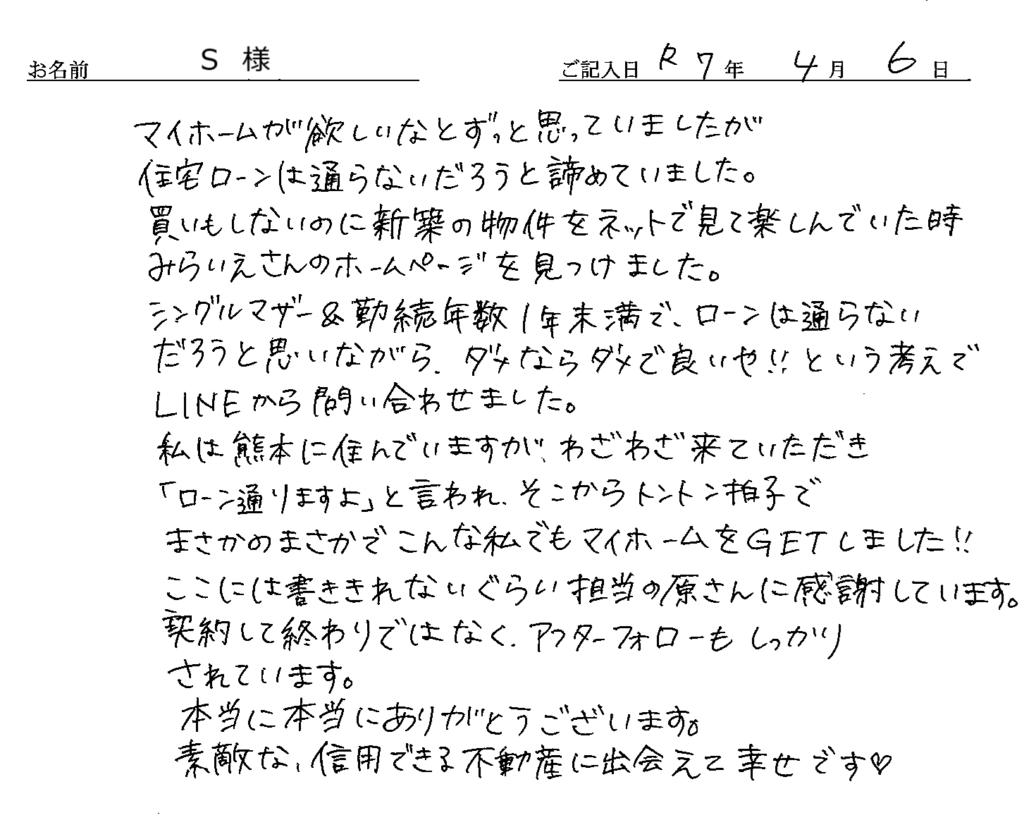 お名前 S 様 ご記入日 R7年 4月 6日
マイホームが欲しいなとずっと思っていましたが
住宅ローンは通らないだろうと諦めていました。
買いもしないのに新築の物件をネットで見て楽しんでいた時
みらいえさんのホームページを見つけました。
シングルマザー&勤続年数1年未満で、ローンは通らない
だろうと思いながら、ダメならダメで良いや!!という考えで
LINEから問い合わせました。
私は熊本に住んでいますが、わざわざ来ていただき
「ローン通りますよ」と言われ、そこからトントン拍子で
まさかのまさかでこんな私でもマイホームをGETしました!!
ここには書ききれないぐらい担当の原さんに感謝しています。
契約して終わりではなく、アフターフォローもしっかり
されています。
本当に本当にありがとうございます。
素敵な、信用できる不動産に出会えて幸せです♡